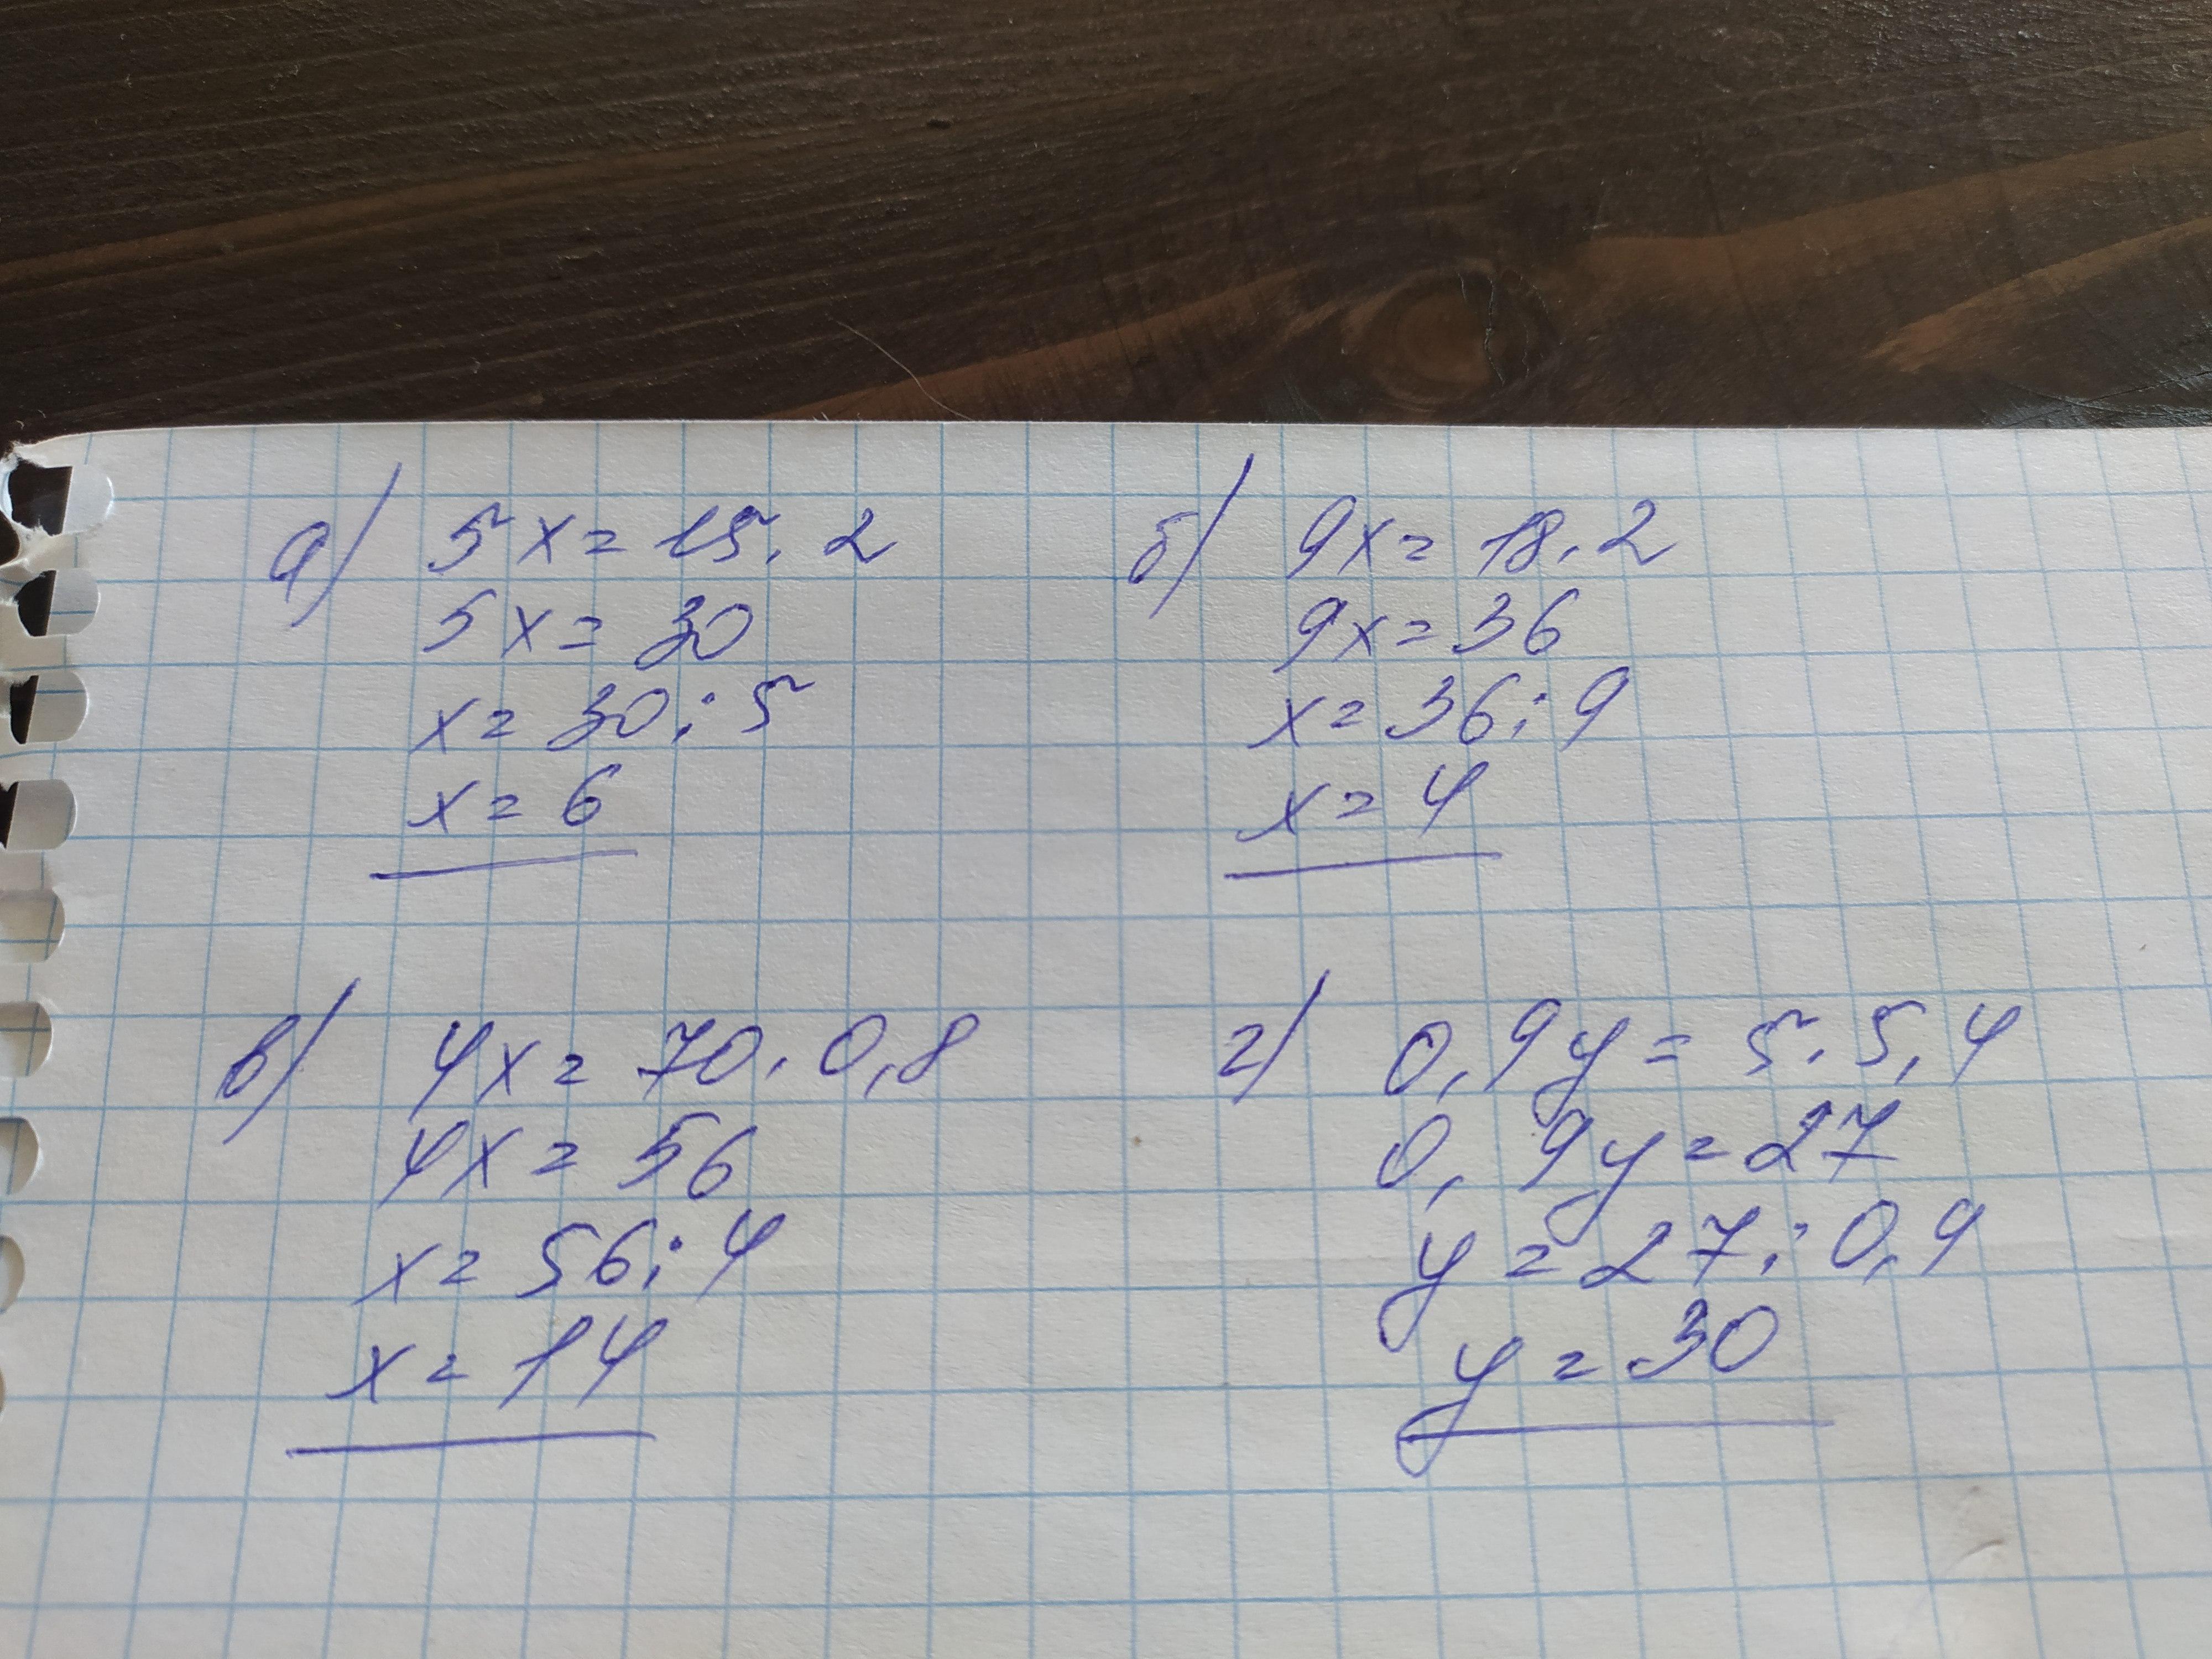 а) 5x = 15 · 2
5x = 30
x = 30 : 5
x = 6
б) 9x = 18 · 2
9x = 36
x = 36 : 9
x = 4
в) 4x = 70 · 0,8
4x = 56
x = 56 : 4
x = 14
г) 0,9y = 5 · 5,4
0,9y = 27
y = 27 : 0,9
y = 30